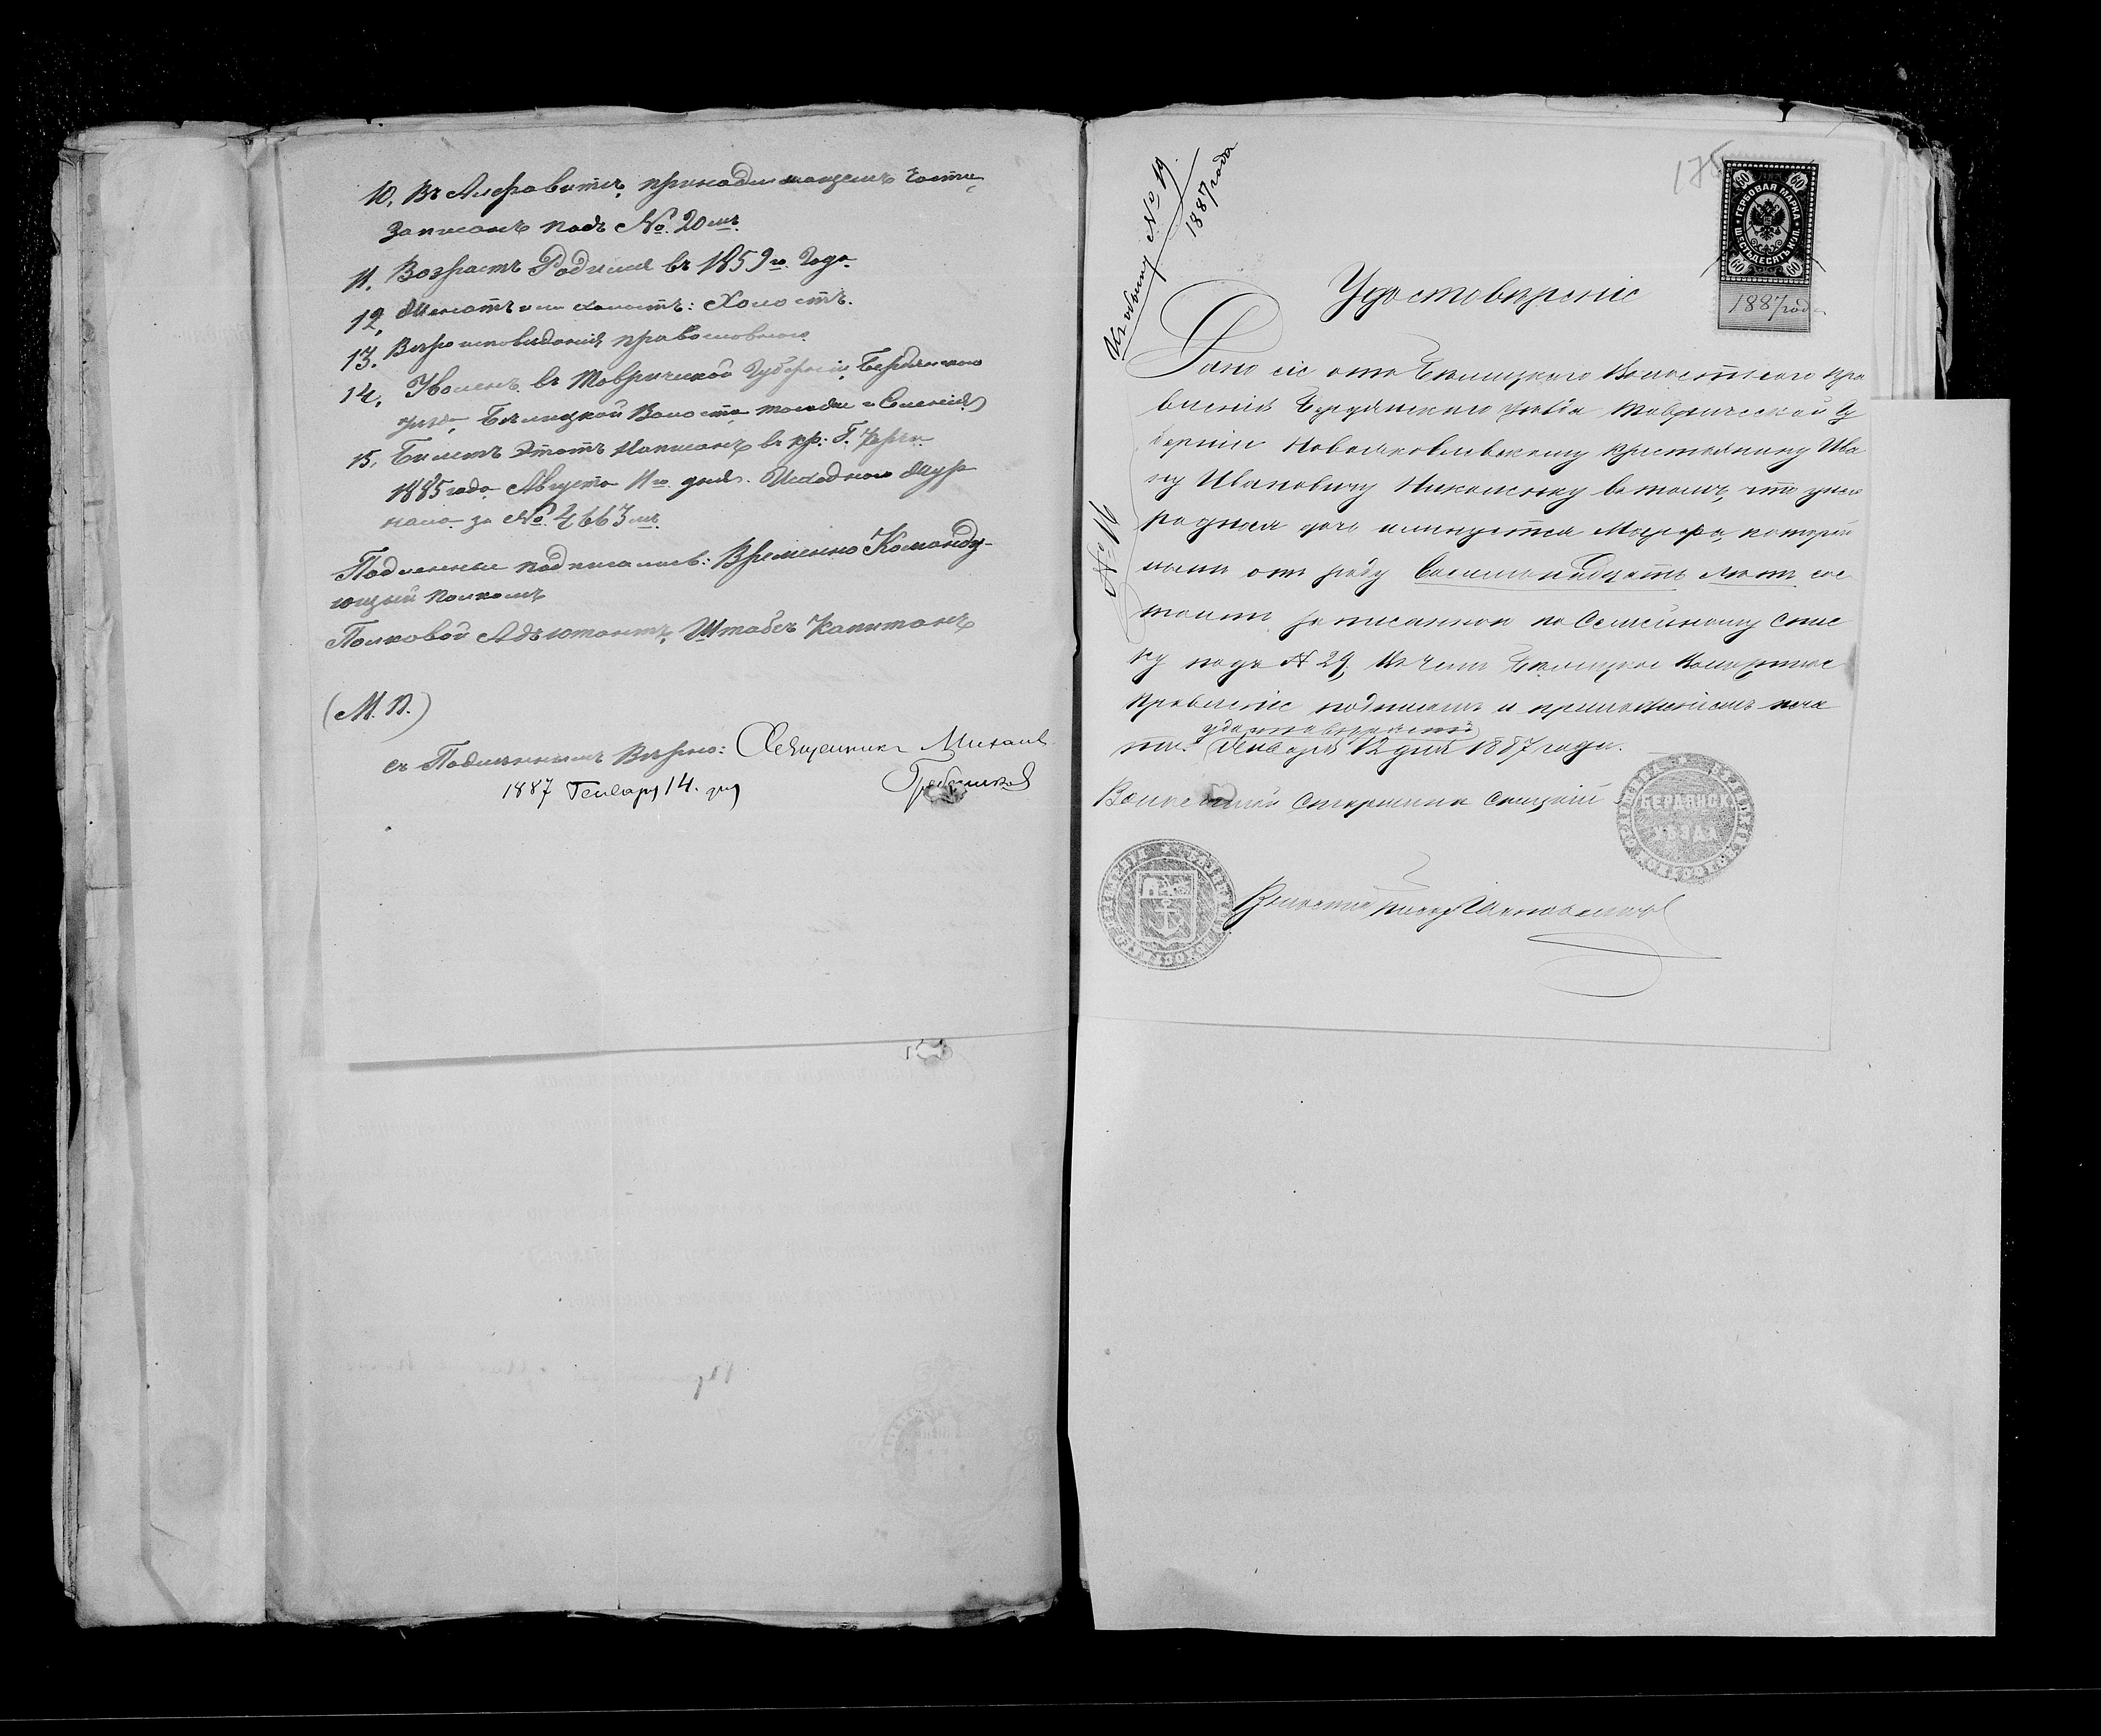 10, Въ Алфавитѣ, принадлежащемъ Части,
записанъ подъ № 20мъ.
11. Возрастъ Родился въ 1859го Года.
12, Женатъ или холостъ: Холостъ.
13. Вѣроисповѣданія православнаго
14, Уволенъ въ Таврической Губерніи, Бердянскаго
уѣзда, Бѣлицкой Волости
15, Билетъ Этотъ Написанъ въ кр:
1885 года Августа 11го дня. Исходнаго Жур
нала за № 4663мъ
Подлинные подписались: Временно Команду-
ющій полкомъ
Полковой Адъютантъ, Штабсъ Капитанъ
(М. П.)
съ Подлиннымъ Вѣрно: Священникъ Михаилъ
Гребинковъ
1887 Генваря 14. дня
Къ обыску № 19
1887 года
175
ГЕРБОВАЯ МАРКА
ШЕСТЬДЕСЯТЪ КОП.
60 60
60 60
1887 года
№ 16
Удостовѣреніе
Дано сіе отъ Бѣлицкаго Волостнаго пра
вленія Бердянскаго уѣзда Таврической Гу
берніи Новояковлевскому крестьянину Ива
ну Ивановичу въ томъ, что
родная дочь именуется Марфа, которой
нынѣ отъ роду Восемьнадцать лѣтъ сос
тоитъ записанной по Семейному Спис
ку подъ № 29, Въ чемъ Бѣлицкое Волостное
правленіе подписомъ и приложеніемъ печа
ти удостовѣряетъ
Января 12 дня 1887 года.
Волостной Старшина
БЕРДЯНСК
УѢЗДА
Волостной писарь